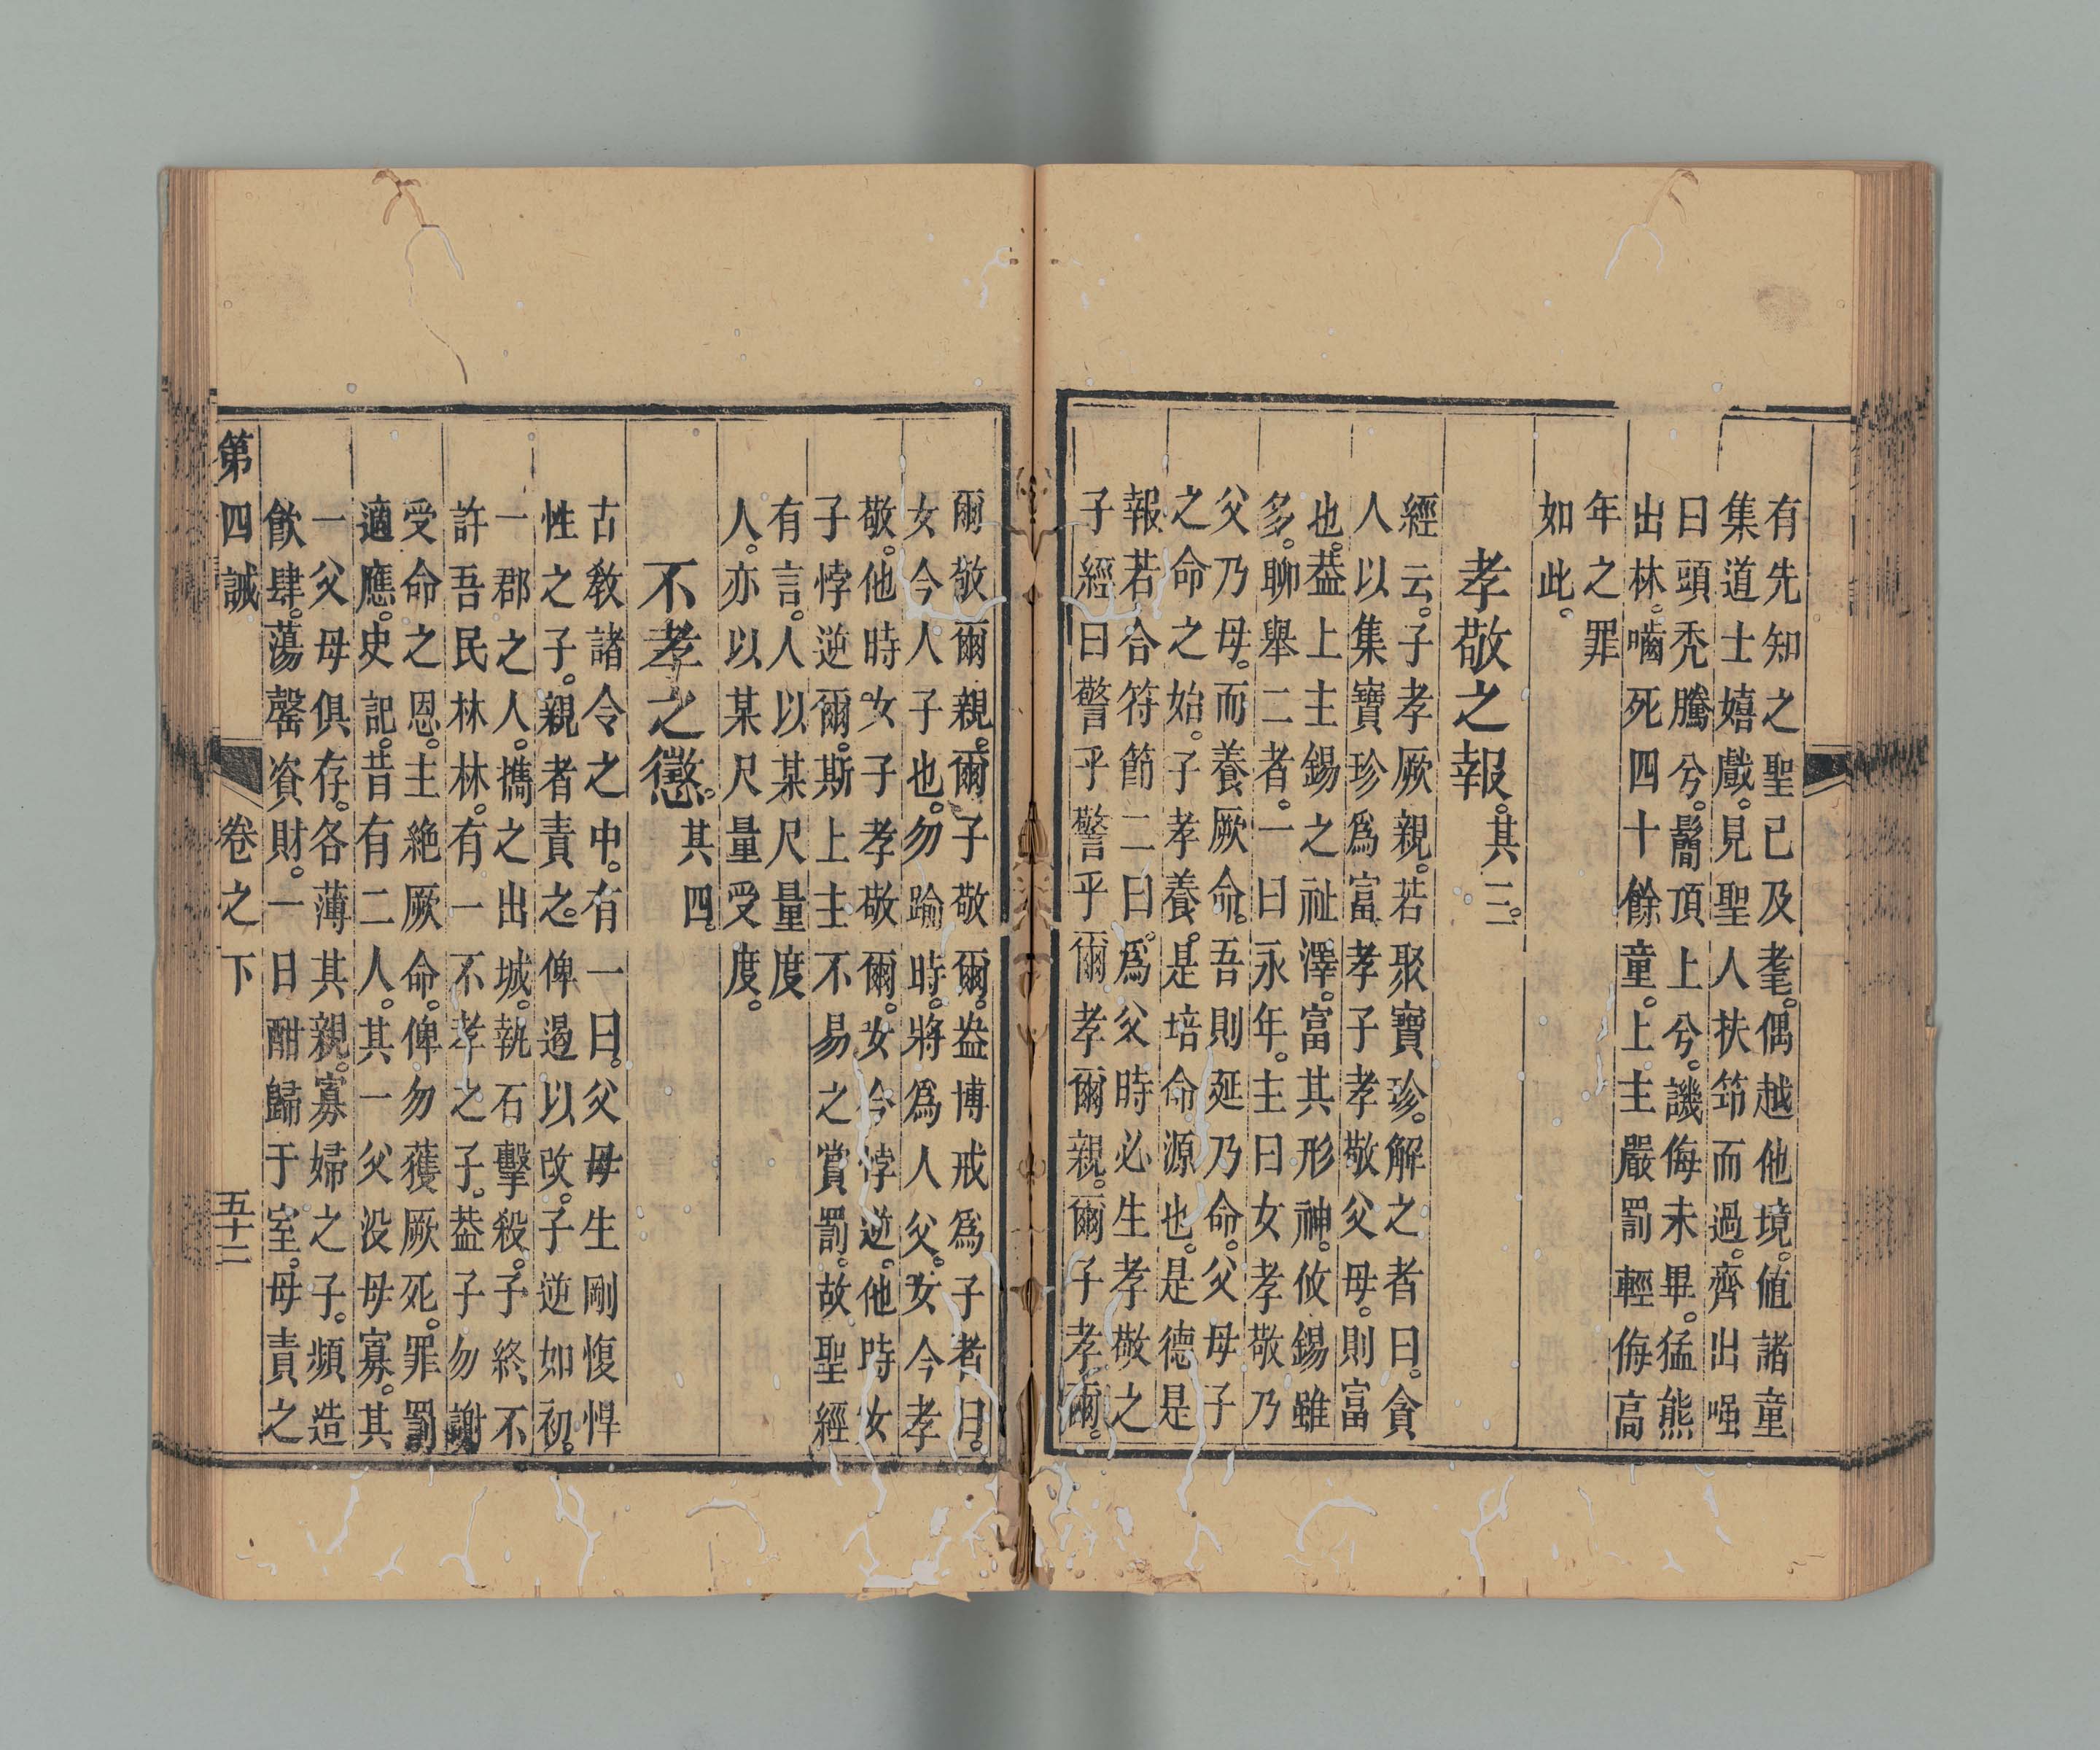 有先知之聖已及耄。偶越他境。値諸童
集道士嬉戲。見聖人扶筇而過。齊出唖
曰頭禿騰兮。鬅頂上兮。譏侮未畢。猛熊
出林。嚙死四十餘童。上主嚴罰輕侮高
年之罪
如此。
孝敬之報。其三。
經云。子孝厥親。若聚寶珍。解之者曰。貪
人以集寶珍爲富。孝子孝敬父母。則富
也。葢上主錫之祉澤。富其形神。攸錫雖
多。聊舉二者。一曰永年。主曰女孝敬乃
父乃母。而養厥命。吾則延乃命。父母子
之命之始。子孝養。是培命源也。是德是
報若合符節。二曰。爲父時必生孝敬之
子。經曰警乎警乎。爾孝爾親。爾子孝爾。
爾敬爾親。爾子敬爾。盎博戒爲子者曰。
女今人子也。勿踰時。將爲人父。女今孝
敬。他時女子孝敬爾。女今悖逆。他時女
子悖逆爾。斯上主不易之賞罰。故聖經
有言。人以某尺量度
人。亦以某尺量受度。
不孝之懲。其四。
古敎諸令之中。有一曰。父母生剛愎悍
性之子。親者責之。俾遏以改。子逆如初。
一郡之人。攜之出城。執石擊殺。子終不
許吾民林林。有一不孝之子。葢子勿謝
受命之恩。主絶厥命。俾勿獲厥死。罪罰
適應。史記。昔有二人。其一父没母寡。其
一父母俱存。各薄其親。寡婦之子。頻造
飮肆。蕩罄資財。一日酣歸于室。母責之
第四誡 卷之下 五十二